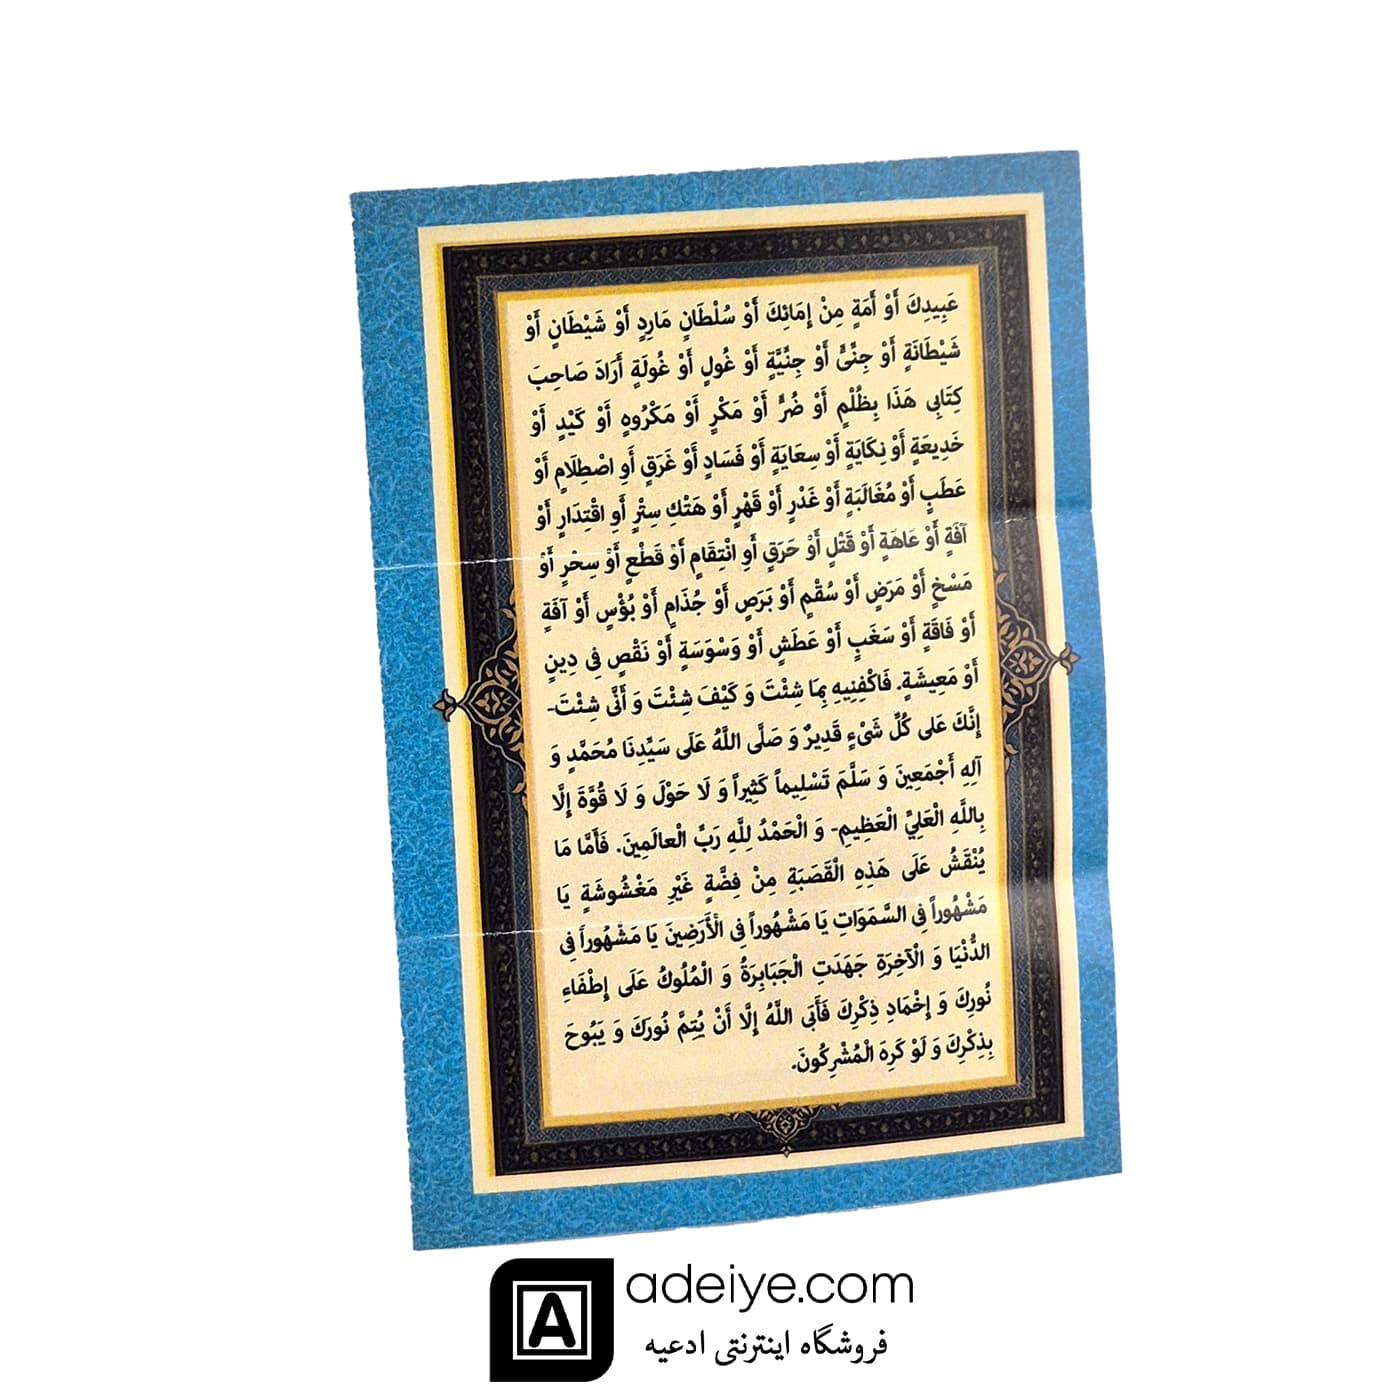 عَبِيدِكَ أَوْ أَمَةٍ مِنْ إِمَائِكَ أَوْ سُلْطَانٍ مَارِدٍ أَوْ شَيْطَانٍ أَوْ
شَيْطَانَةٍ أَوْ جِنِّيٍّ أَوْ جِنِّيَّةٍ أَوْ غُولٍ أَوْ غُولَةٍ أَرَادَ صَاحِبَ
كِتَابِي هَذَا بِظُلْمٍ أَوْ ضُرٍّ أَوْ مَكْرٍ أَوْ مَكْرُوهٍ أَوْ كَيْدٍ أَوْ
خَدِيعَةٍ أَوْ نِكَايَةٍ أَوْ سِعَايَةٍ أَوْ فَسَادٍ أَوْ غَرَقٍ أَوِ اصْطِلَامٍ أَوْ
عَطَبٍ أَوْ مُغَالَبَةٍ أَوْ غَدْرٍ أَوْ قَهْرٍ أَوْ هَتْكِ سِتْرٍ أَوِ اقْتِدَارٍ أَوْ
آفَةٍ أَوْ عَاهَةٍ أَوْ قَتْلٍ أَوْ حَرَقٍ أَوِ انْتِقَامٍ أَوْ قَطْعٍ أَوْ سِحْرٍ أَوْ
مَسْخٍ أَوْ مَرَضٍ أَوْ سُقْمٍ أَوْ بَرَصٍ أَوْ جُذَامٍ أَوْ بُؤْسٍ أَوْ آفَةٍ
أَوْ فَاقَةٍ أَوْ سَغَبٍ أَوْ عَطَشٍ أَوْ وَسْوَسَةٍ أَوْ نَقْصٍ فِي دِينٍ
أَوْ مَعِيشَةٍ. فَاكْفِنِيهِ بِمَا شِئْتَ وَ كَيْفَ شِئْتَ وَ أَنَّى شِئْتَ-
إِنَّكَ عَلى كُلِّ شَيْءٍ قَدِيرٌ وَ صَلَّى اللَّهُ عَلَى سَيِّدِنَا مُحَمَّدٍ وَ
آلِهِ أَجْمَعِينَ وَ سَلَّمَ تَسْلِيماً كَثِيراً وَ لَا حَوْلَ وَ لَا قُوَّةَ إِلَّا
بِاللَّهِ الْعَلِيِّ الْعَظِيمِ- وَ الْحَمْدُ لِلَّهِ رَبِّ الْعالَمِينَ. فَأَمَّا مَا
يُنْقَشُ عَلَى هَذِهِ الْقَصَبَةِ مِنْ فِضَّةٍ غَيْرِ مَغْشُوشَةٍ يَا
مَشْهُوراً فِي السَّمَوَاتِ يَا مَشْهُوراً فِي الْأَرَضِينَ يَا مَشْهُوراً فِي
الدُّنْيَا وَ الْآخِرَةِ جَهَدَتِ الْجَبَابِرَةُ وَ الْمُلُوكُ عَلَى إِطْفَاءِ
نُورِكَ وَ إِخْمَادِ ذِكْرِكَ فَأَبَى اللَّهُ إِلَّا أَنْ يُتِمَّ نُورَكَ وَ يَبُوحَ
بِذِكْرِكَ وَ لَوْ كَرِهَ الْمُشْرِكُونَ.
A adeiye.com
فروشگاه اینترنتی ادعیه